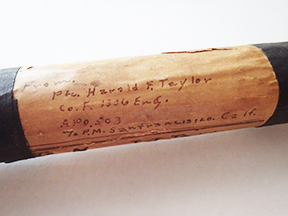 From:
Pvt. Harold F. Taylor
Co. F. 1336 Eng.
A.P.O. 503
% P.M. San Francisico, Calif.